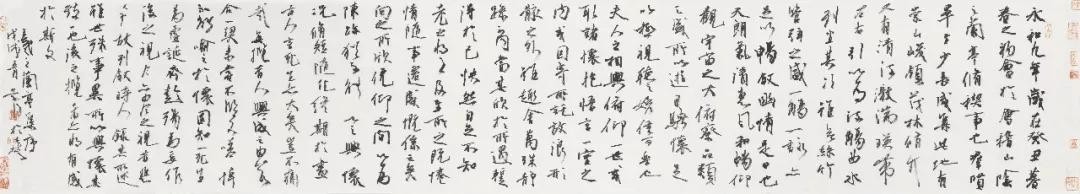 永和九年歲在癸丑暮
春之初會於會稽山陰
之蘭亭脩禊事也羣賢
畢至少長咸集此地有
崇山峻領茂林脩竹
又有清流激湍暎帶
左右引以為流觴曲水
列坐其次雖無絲竹
管弦之盛一觴一詠亦
足以暢敘幽情是日也
天朗氣清惠風和暢仰
觀宇宙之大俯察品類
之盛所以遊目騁懷足
以極視聽之娛信可樂也
夫人之相與俯仰一世或
取諸懷抱悟言一室之
內或因寄所託放浪形
骸之外雖趣舍萬殊靜
躁不同當其欣於所遇蹔
得於己快然自足不知
老之將至及其所之既惓
情隨事遷感慨係之矣
向之所欣俛仰之間以為
陳跡猶不能不以之興懷
況脩短隨化終期於盡
古人云死生亦大矣豈不痛
哉每攬昔人興感之由若
合一契未嘗不臨文嗟悼
不能喻之於懷固知一死生
為虛誕齊彭殤為妄作
後之視今亦由今之視昔悲
夫故列敘時人錄其所述
雖世殊事異所以興懷其
致一也後之攬者亦將有感
於斯文
羲之蘭亭集序